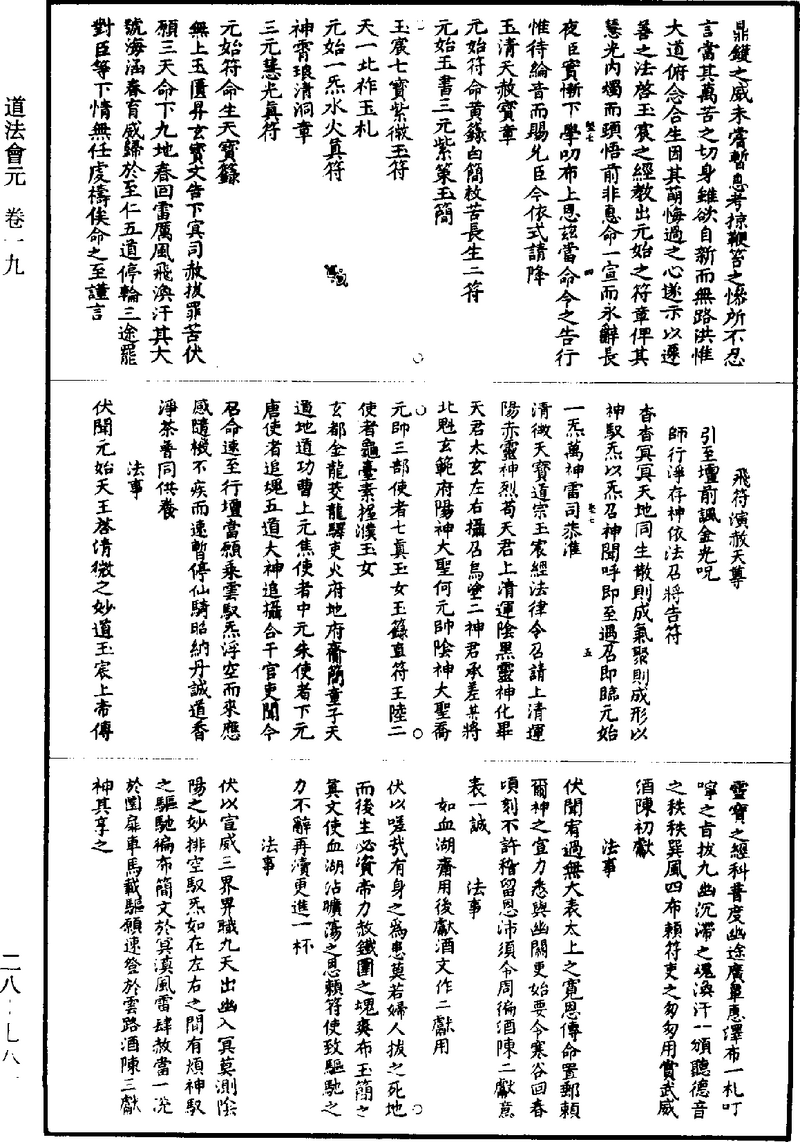 道法會元 卷一九
鼎鑊之威未嘗暫息考掠鞭笞之慘所不忍
言當其萬苦之切身雖欲自新而無路洪惟
大道俯念含生因其萌悔過之心遂示以遷
善之法啓玉宸之經教出元始之符章俾其
慧光內燭而頭悟前非惠命一宣而永辭長
夜臣實慚下學叨布上恩茲當命令之告行
惟待綸音而賜允臣今依式請降
玉清天赦寶章
元始符命黃籙白簡救苦長生二符
元始玉書三元紫策玉簡
玉宸七寶紫微玉符
天一北祚玉札
元始一炁水火真符
神霄琅清洞章
三元慧光真符
元始符命生天寶籙
無上玉匱昇玄寶文告下冥司赦拔罪苦伏
願三天命下九地春回雷厲風飛渙汗其大
號海涵春育咸歸於至仁五道停輪三途罷
對臣等下情無任虔禱俟命之至謹言
飛符演赦天尊
引至壇前諷金光呪
師行淨存神依法召將告符
杳杳冥冥天地同生散則成氣聚則成形以
神馭炁以炁召神聞呼即至遇召即臨元始
一炁萬神雷司恭准
清微天寶道宗玉宸經法律令召請上清運
陽赤靈神烈苟天君上清運陰黑靈神化畢
天君太玄左右攝召烏營二神君承差共將
北魁玄範府陽神大聖何元帥陰神大聖喬
元帥三部使者七真玉女玉籙直符王陸二
使者龜臺素握濮玉女
玄都金龍茭龍驛吏火府地府齋簡童子天
道地道功曹上元焦使者中元朱使者下元
唐使者追魂五道大神追攝合干官吏聞今
召命速至行壇當願乘雲馭炁浮空而來應
感隨機不疾而速暫停仙騎昭納丹誠道香
淨茶普同供養
法事
伏聞元始天王啓清微之妙道玉宸上帝傳
靈寶之經科普度幽途廣覃惠澤布一札叮
嚀之旨拔九幽沉滯之魂渙汗一頒聽德音
之秩秩巽風四布賴符吏之匆匆用賞武威
酒陳初獻
法事
伏聞宥過無大表太上之寬恩傳命置郵賴
爾神之宣力悉與幽關更始要令寒谷回春
頃刻不許稽留恩沛須令周徧酒陳二獻意
表一誠 法事
如血湖齋用後獻酒文作二獻用
伏以嗟哉有身之為患莫若婦人拔之死地
而後生必資帝力赦鐵圍之塊爽布玉簡之
真文使血湖沾曠蕩之恩賴符使致驅馳之
力不辭再瀆更進一杯
法事
伏以宣威三界界職九天出幽入冥莫測陰
陽之妙排空馭炁如在左右之間有煩神馭
之驅馳徧布簡文於冥漠風雷肆赦當一洗
於圜扉車馬載驅願速登於雲路酒陳三獻
神其享之